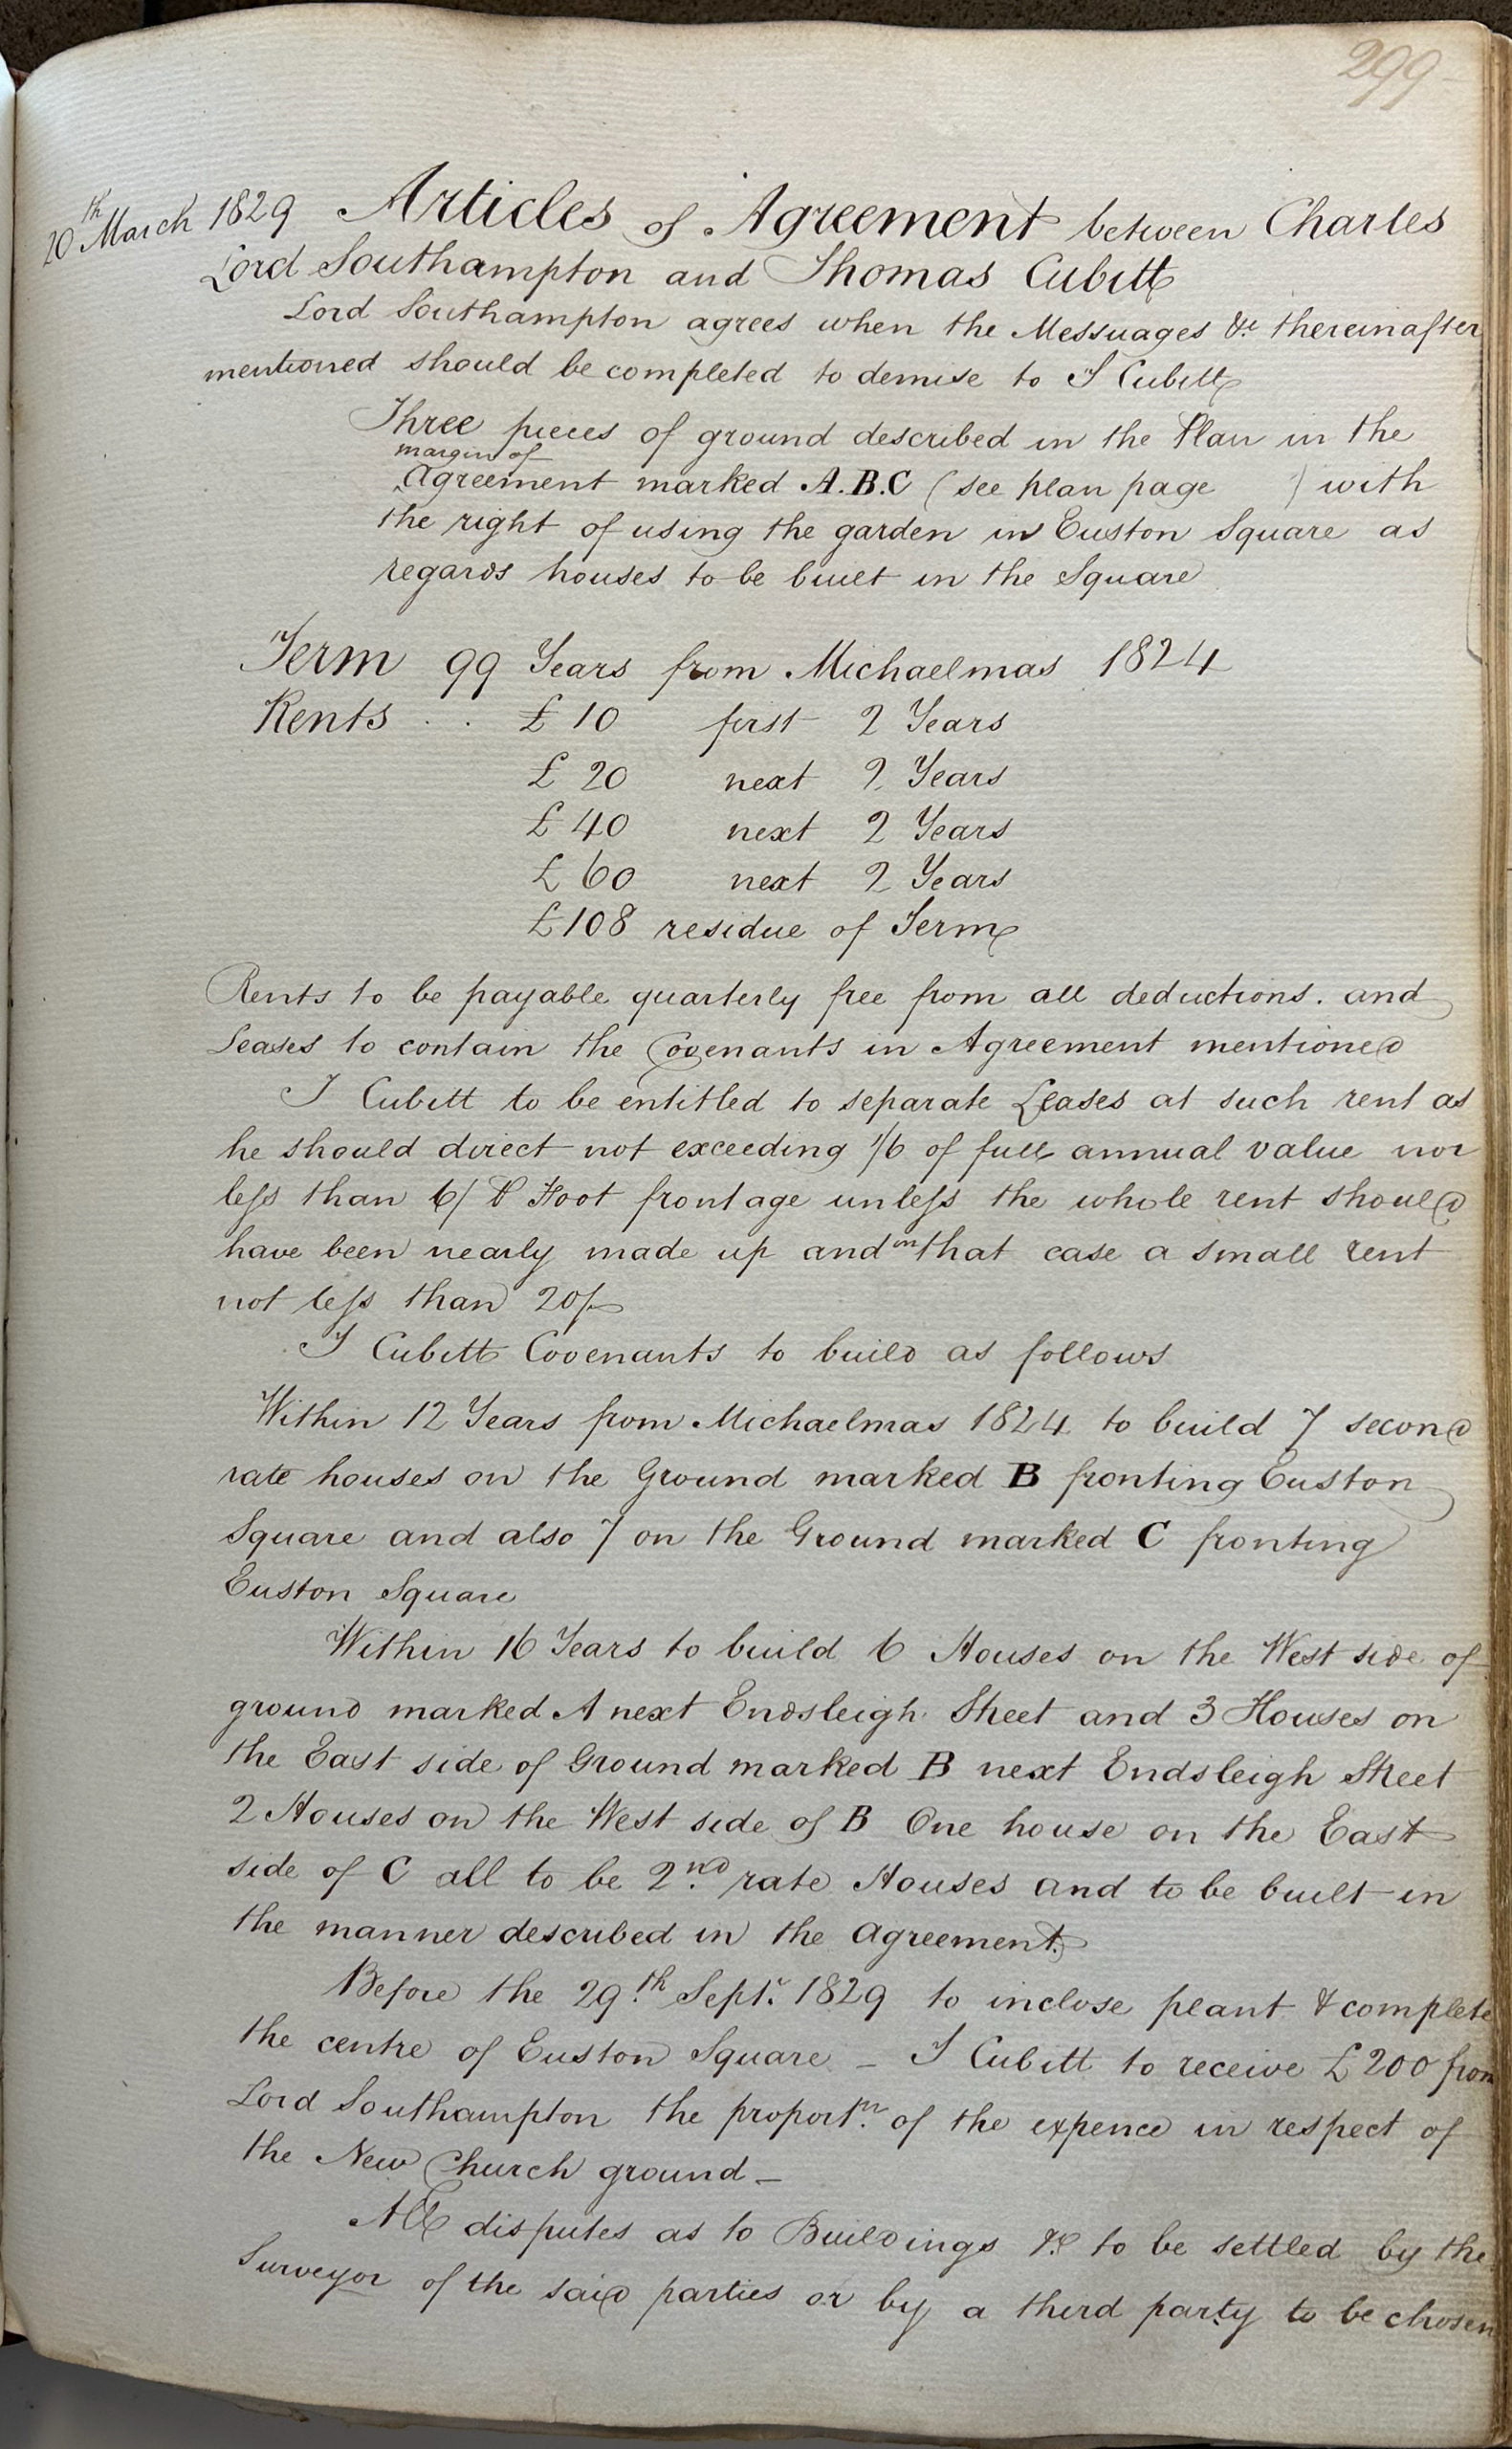 299
20th March 1829 Articles of Agreement between Charles
Lord Southampton and Thomas Cubitt
Lord Southampton agrees when the Messuages &c thereinafter
mentioned should be completed to demise to T Cubitt
Three pieces of ground described in the Plan in the
margin of
Agreement marked A.B.C (see plan page ) with
the right of using the garden in Euston Square as
regards houses to be built in the Square
Term 99 Years from Michaelmas 1824
Rents . . £10 first 2 Years
£20 next 2 Years
£40 next 2 Years
£60 next 2 Years
£108 residue of Term
Rents to be payable quarterly free from all deductions. and
Leases to contain the Covenants in Agreement mentioned
T Cubitt to be entitled to separate Leases at such rent as
he should direct not exceeding 1/6 of full annual value nor
less than 6/ ⅌ Foot frontage unless the whole rent should
have been nearly made up and in that case a small rent
not less than 20/-
T Cubitt Covenants to build as follows
Within 12 Years from Michaelmas 1824 to build 7 second
rate houses on the Ground marked B fronting Euston
Square and also 7 on the Ground marked C fronting
Euston Square
Within 16 Years to build 6 Houses on the West side of
ground marked A next Endsleigh Street and 3 Houses on
the East side of Ground marked B next Endsleigh Street
2 Houses on the West side of B One house on the East
side of C all to be 2nd rate Houses and to be built in
the manner described in the Agreement.
Before the 29th Septr. 1829 to inclose plant & complete
the centre of Euston Square – T Cubitt to receive £200 from
Lord Southampton the proportn. of the expence in respect of
the New Church ground –
All disputes as to Buildings &c to be settled by the
Surveyor of the said parties or by a third party to be chosen